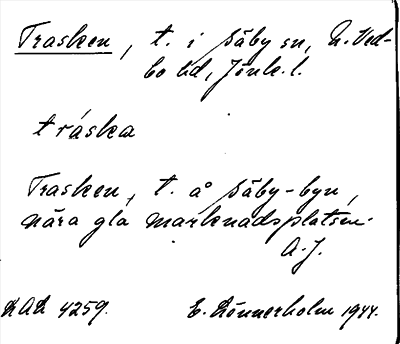 Trasken, t. i Säby sn, N. Ved-
bo hd, Jönk. l.
tráska
Trasken, t. å Säby-byn,
nära gla marknadsplatsen.
A.J.
4259. E. Rönnerholm 1944.